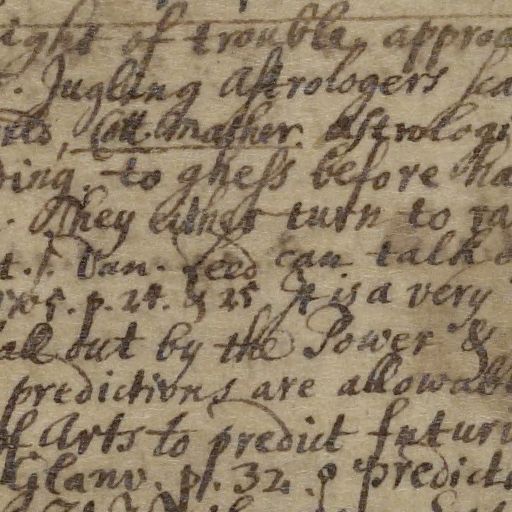 ight of trouble approa
. Jugling Astrologers sca
Cott. Mather. Astrologi
ring. to ghess before ha
. They either turn to ra
t. S. Dan. can talk
5. p. 24. & 25 It is a very
all out by the Power &
predictions are allowabl
of Arts to predict futuri
Glanv. p. 32. predicti